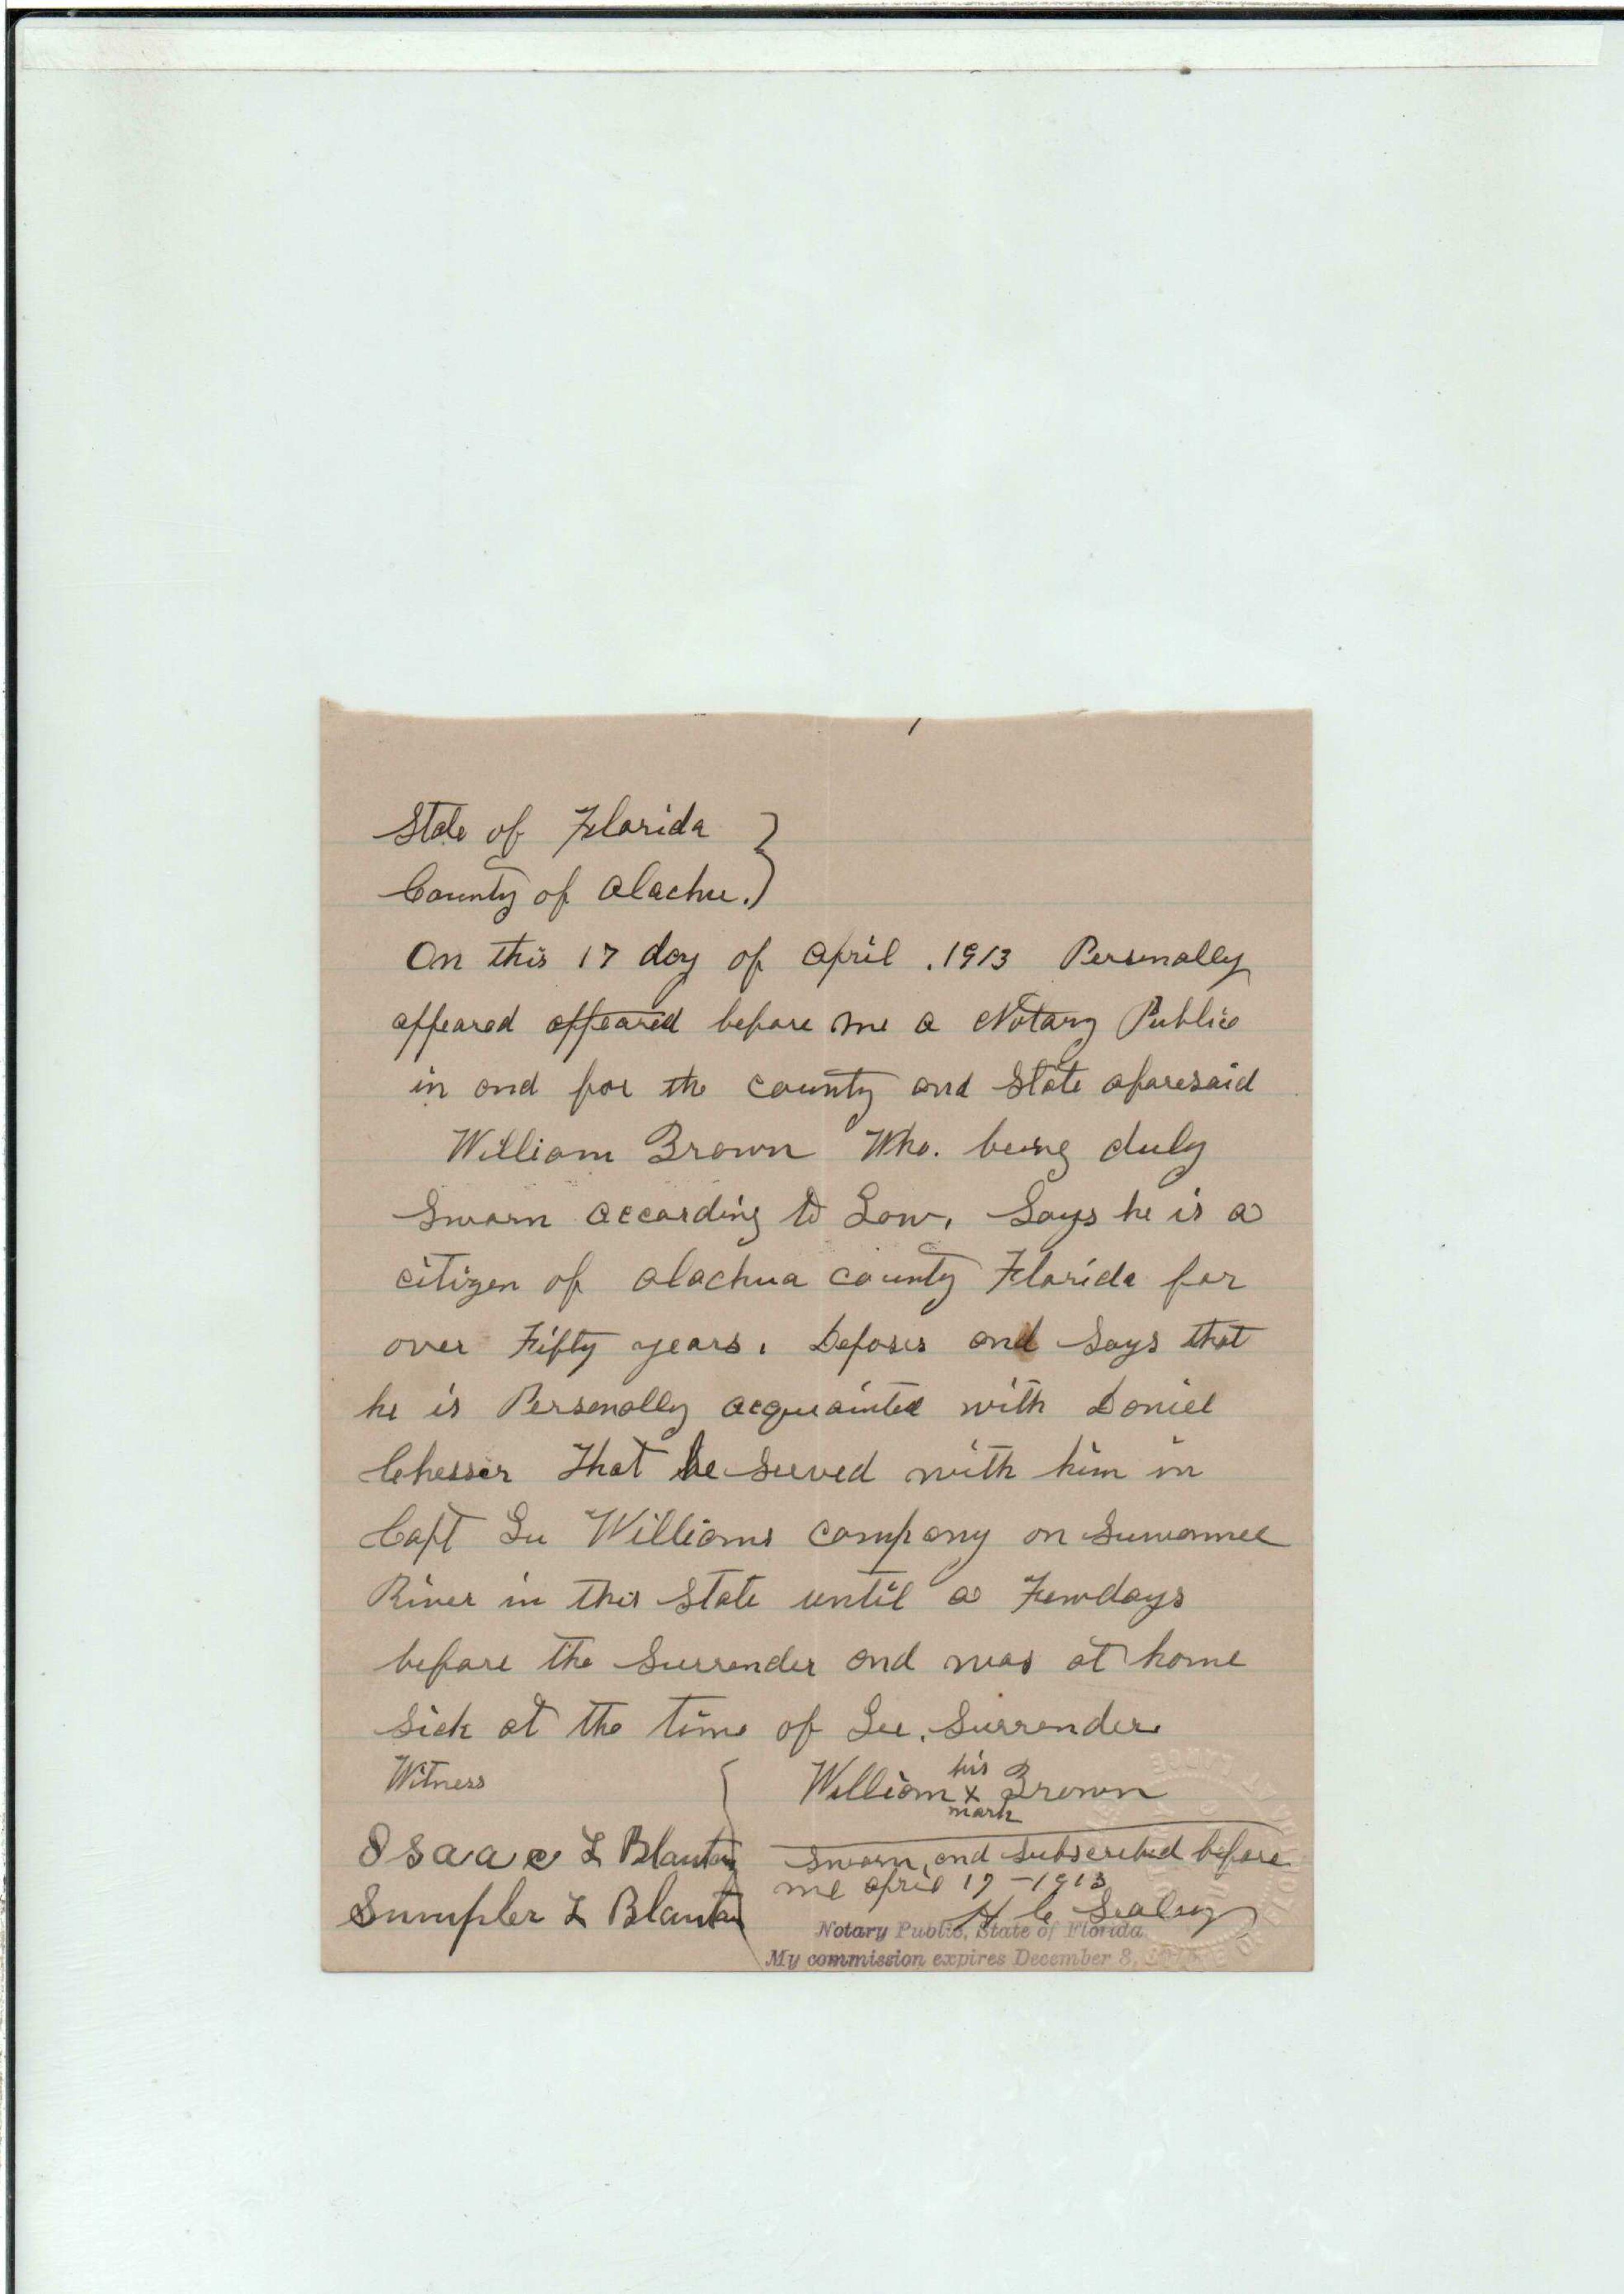 State of Florida
County of Alachu.
On this 17 day of April .1913 Personally
appeared appeared before me a Notary Public
in and for the county and State aforesaid
William Brown Who. being duly
Sworn according to Law, Says he is a
citizen of Alachua county Florida for
over Fifty years. Deposes and Says that
he is Personally acquainted with Daniel
Chesser That he Served with him in
Capt Lu Williams company on Suwannee
River in this State until a Few days
before the Surrender and was at home
Sick at the time of Lee. Surrender
Witness
his
William x Brown
mark
Isaac L Blanton
Sworn, and Subscribed before
me April 17 - 1913
Sumpler L Blanton
H C Sealey
Notary Public, State of Florida
My commission expires December 8,